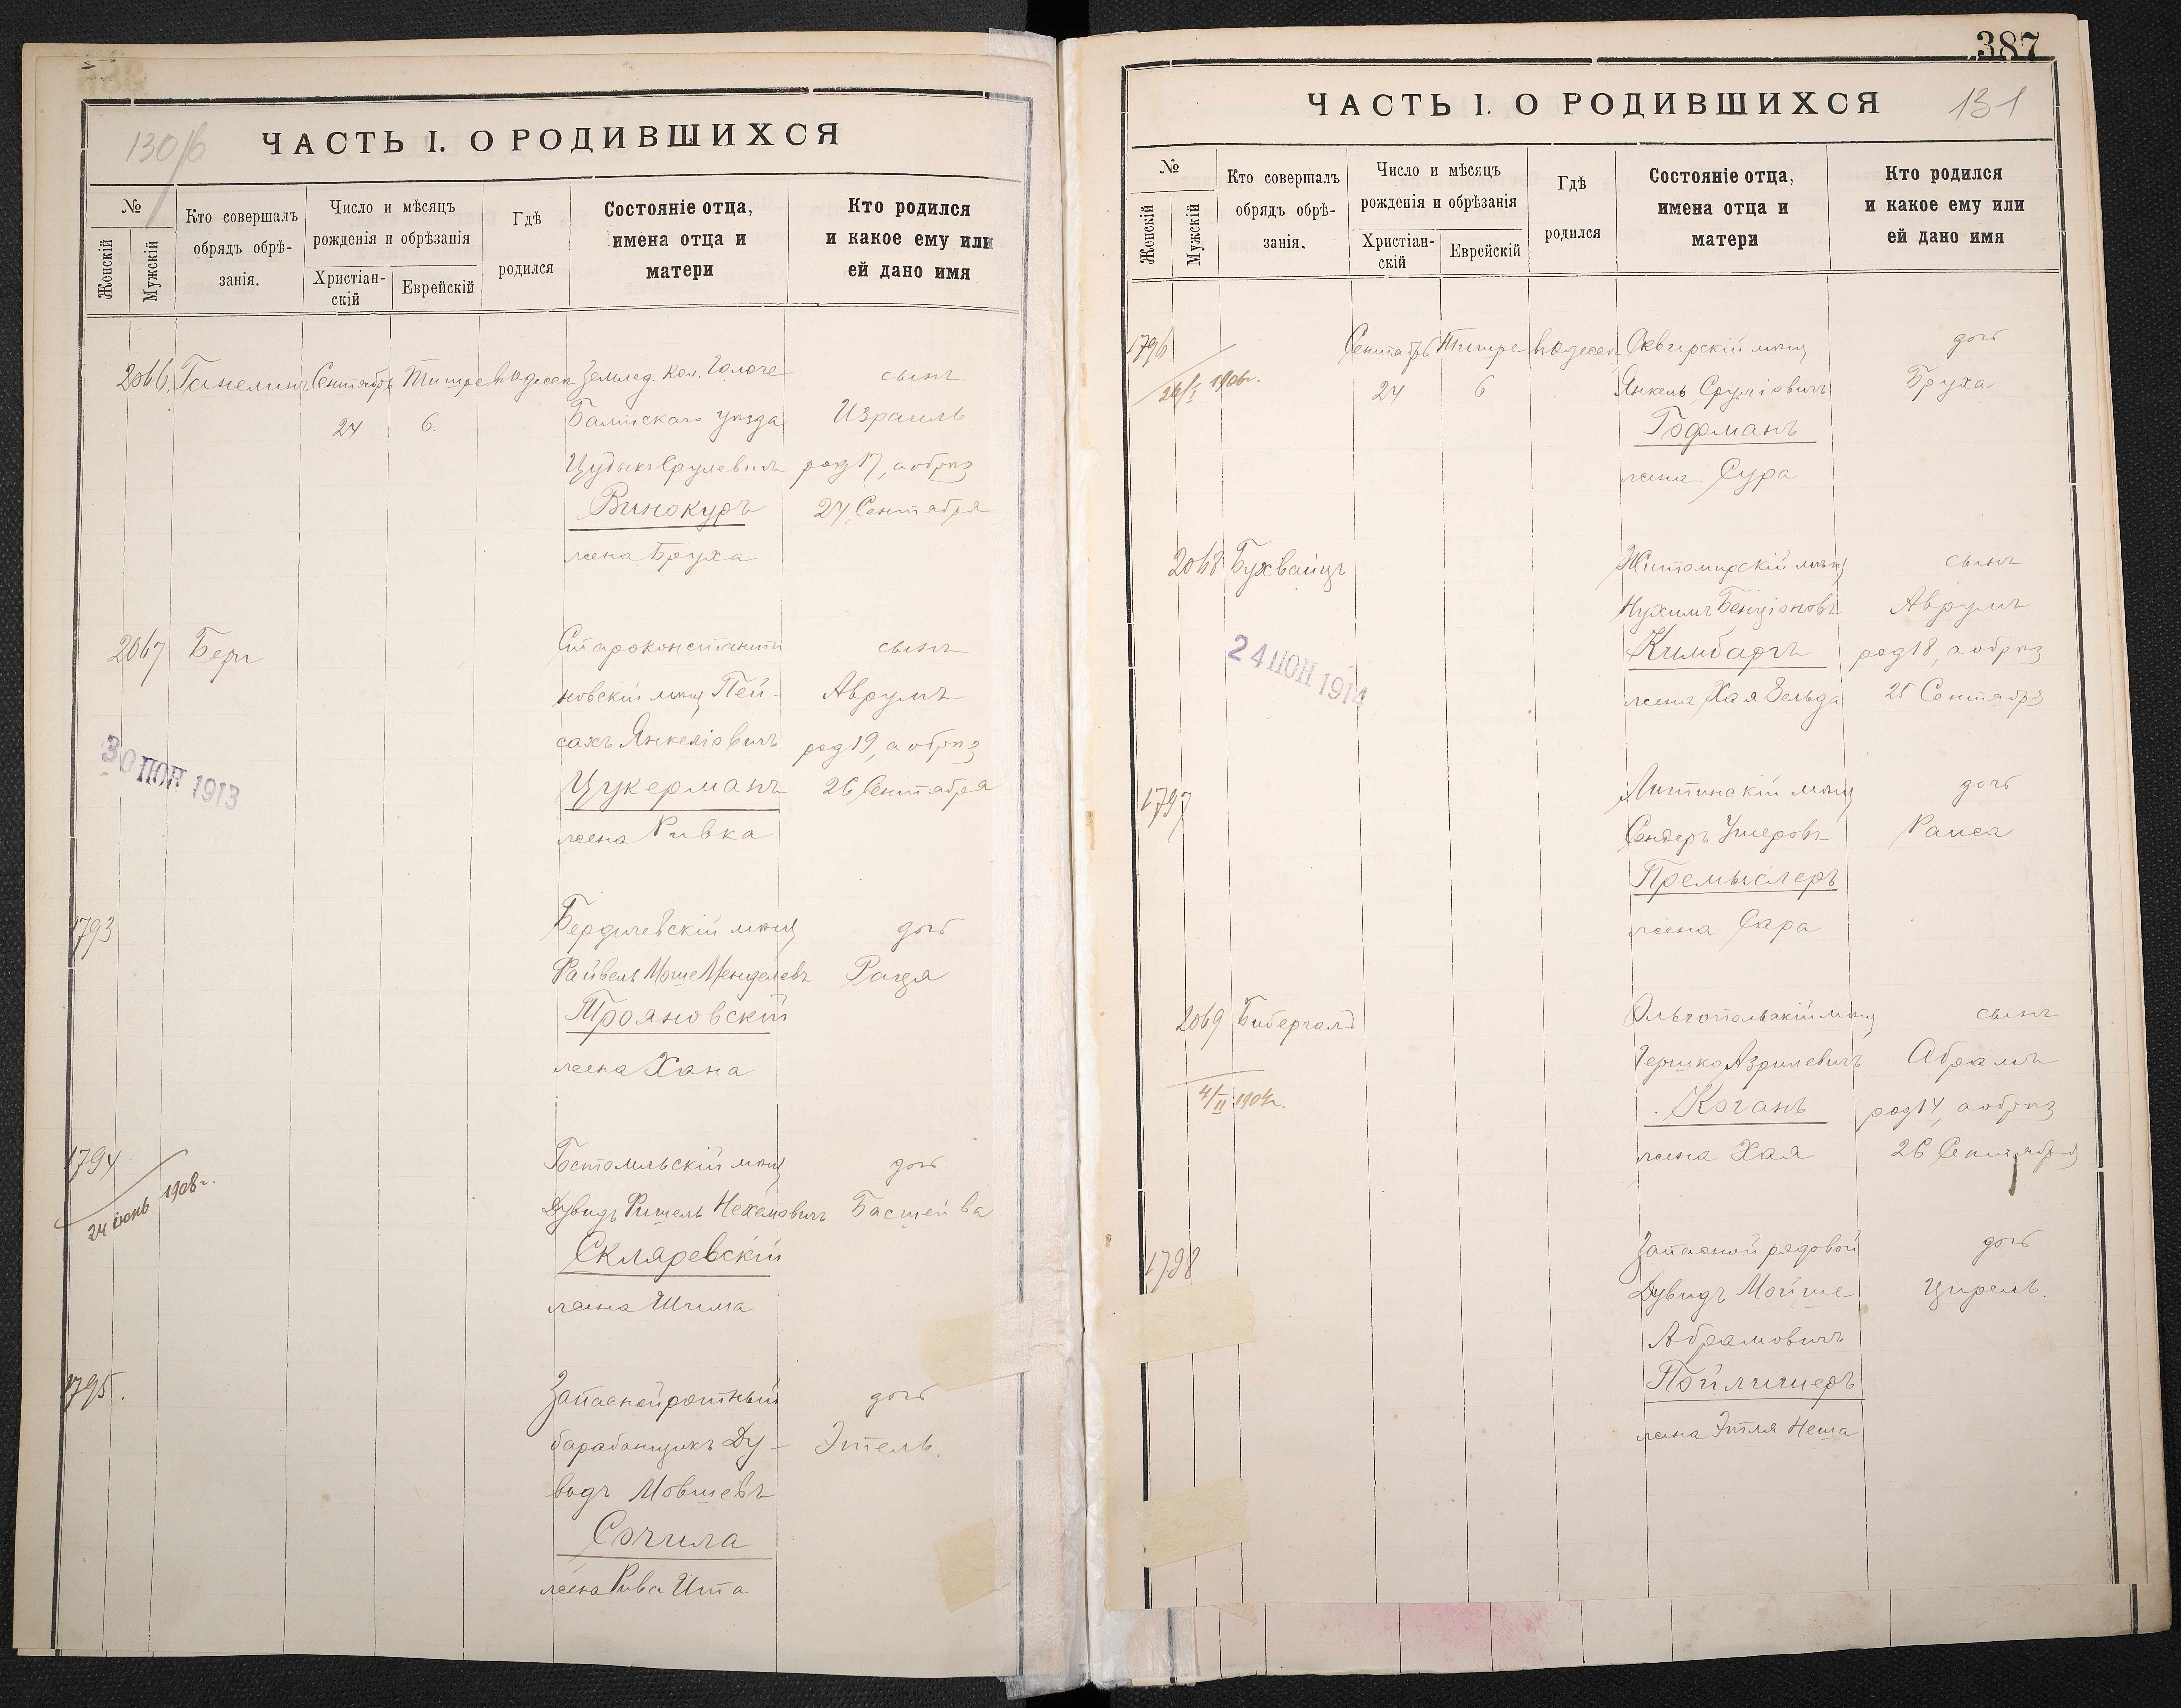 130 об
ЧАСТЬ I. О РОДИВШИХСЯ
№
Женскій
Мужскій
Кто совершалъ
обрядъ обрѣ-
занія.
Число и мѣсяцъ
рожденія и обрѣзанія
Христіан-
скій
Еврейскій
Гдѣ
родился
Состояніе отца,
имена отца и
матери
Кто родился
и какое ему или
ей дано имя
2066. Ганелинъ Сентябрь Тишре въ Одессѣ Землед. Кол. сынъ
24 6. Балтскаго уѣзда Израиль
Срулевичъ род 17, а обрѣз
Винокуръ 24 Сентября
жена Бруха
2067 Бери Староконстанти сынъ
новскій мѣщ Пей- Аврумъ
сахъ Янкеліовичъ род 19, а обрѣз
30 1913
Цукерманъ 26 Сентября
жена Ривка
1793 Бердичевскій мѣщ дочь
Файвель Моше Менделевъ Раця
Трояновскій
жена Хана
1794 Гостомльскій мѣщ дочь
24 іюнь 1908 г. Дувидъ Фишель Басшейва
Скляревскій
жена Шима
1795. Запасной ротный дочь
барабанщикъ Ду- Этель.
видъ Мовшевъ
Сочила
жена Рива Ита
387
131
ЧАСТЬ I. О РОДИВШИХСЯ
№
Женскій
Мужскій
Кто совершалъ
обрядъ обрѣ-
занія.
Число и мѣсяцъ
рожденія и обрѣзанія
Христіан-
скій
Еврейскій
Гдѣ
родился
Состояніе отца,
имена отца и
матери
Кто родился
и какое ему или
ей дано имя
1796 Сентябрь Тишре въ Одессѣ Сквирскій мѣщ дочь
26/I 1906 г. 24 6 Янкель Сруліовичъ Бруха
Гофманъ
жена Сура
2068 Бухвайцъ Житомирскій мѣщ сынъ
Нухимъ Бенціоновъ Аврумъ
24 1914
Кимбаръ род 18, а обрѣз
жена Хая Зельда 25 Сентябр
1797 Литинскій мѣщ дочь
Сендеръ Ушеровъ Раиса
Премыслеръ
жена Сара
2069 Бибергалъ Ольгопольскій мѣщ сынъ
Гершко Азрилевичъ Абрамъ
4/II 1904 г. Коганъ род 14, а обрѣз
жена Хая 26 Сентября
1798 Запасной рядовой дочь
Дувидъ Мойше Цирель.
Абрамовичъ
Пойлишеръ
жена Этля Неша